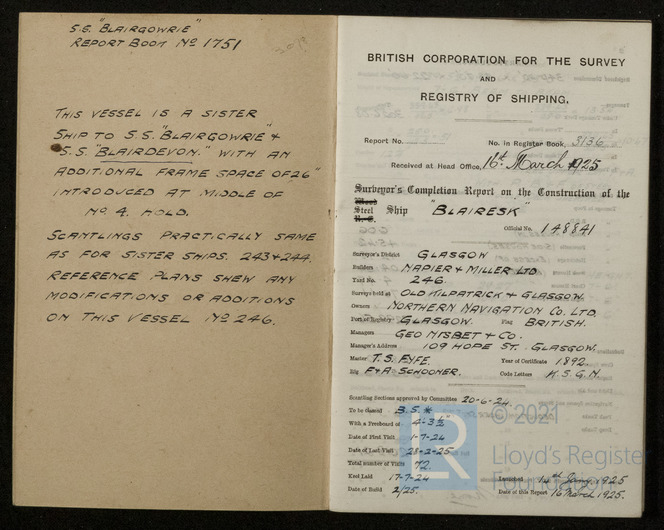 S.S. "BLAIRGOWRIE"
REPORT BOOK Nº 1751
THIS VESSEL IS A SISTER
SHIP TO S.S. "BLAIRGOWRIE" &
S.S. "BLAIRDEVON." WITH AN
ADDITIONAL FRAME SPACE OF 26"
INTRODUCED AT MIDDLE OF
No. 4. HOLD.
SCANTLINGS PRACTICALLY SAME
AS FOR SISTER SHIPS. 243 & 244.
REFERENCE PLANS SHEW ANY
MODIFICATIONS OR ADDITIONS
ON THIS VESSEL Nº 246.
BRITISH CORPORATION FOR THE SURVEY
AND
REGISTRY OF SHIPPING.
Report No. No. in Register Book, 3136
Received at Head Office, 16th March 1925
Surveyor's Completion Report on the Construction of the
Wood
Steel Ship "BLAIRESK"
Official No. 148841
Surveyor's District GLASGOW
Builders NAPIER & MILLER LTD
Yard No. 246.
Surveys held at OLD KILPATRICK & GLASGOW.
Owners NORTHERN NAVIGATION CO. LTD.
Port of Registry GLASGOW. Flag BRITISH.
Managers GEO NISBET & CO.
Manager's Address 109 HOPE ST. GLASGOW.
Master T.S. FYFE. Year of Certificate 1892
Rig F & A SCHOONER. Code Letters K.S.G.N.
Scantling Sections approved by Committee 20-6-24.
To be classed B.S.*
With a Freeboard of 4-3½"
Date of First Visit 1-7-24
Date of Last Visit 28-2-25
Total number of Visits 72.
Keel Laid 17-7-24 Launched 14th Jany. 1925
Date of Build 2/25. Date of this Report 16 March 1925.
© 2021
LR
Lloyd's Register
Foundation